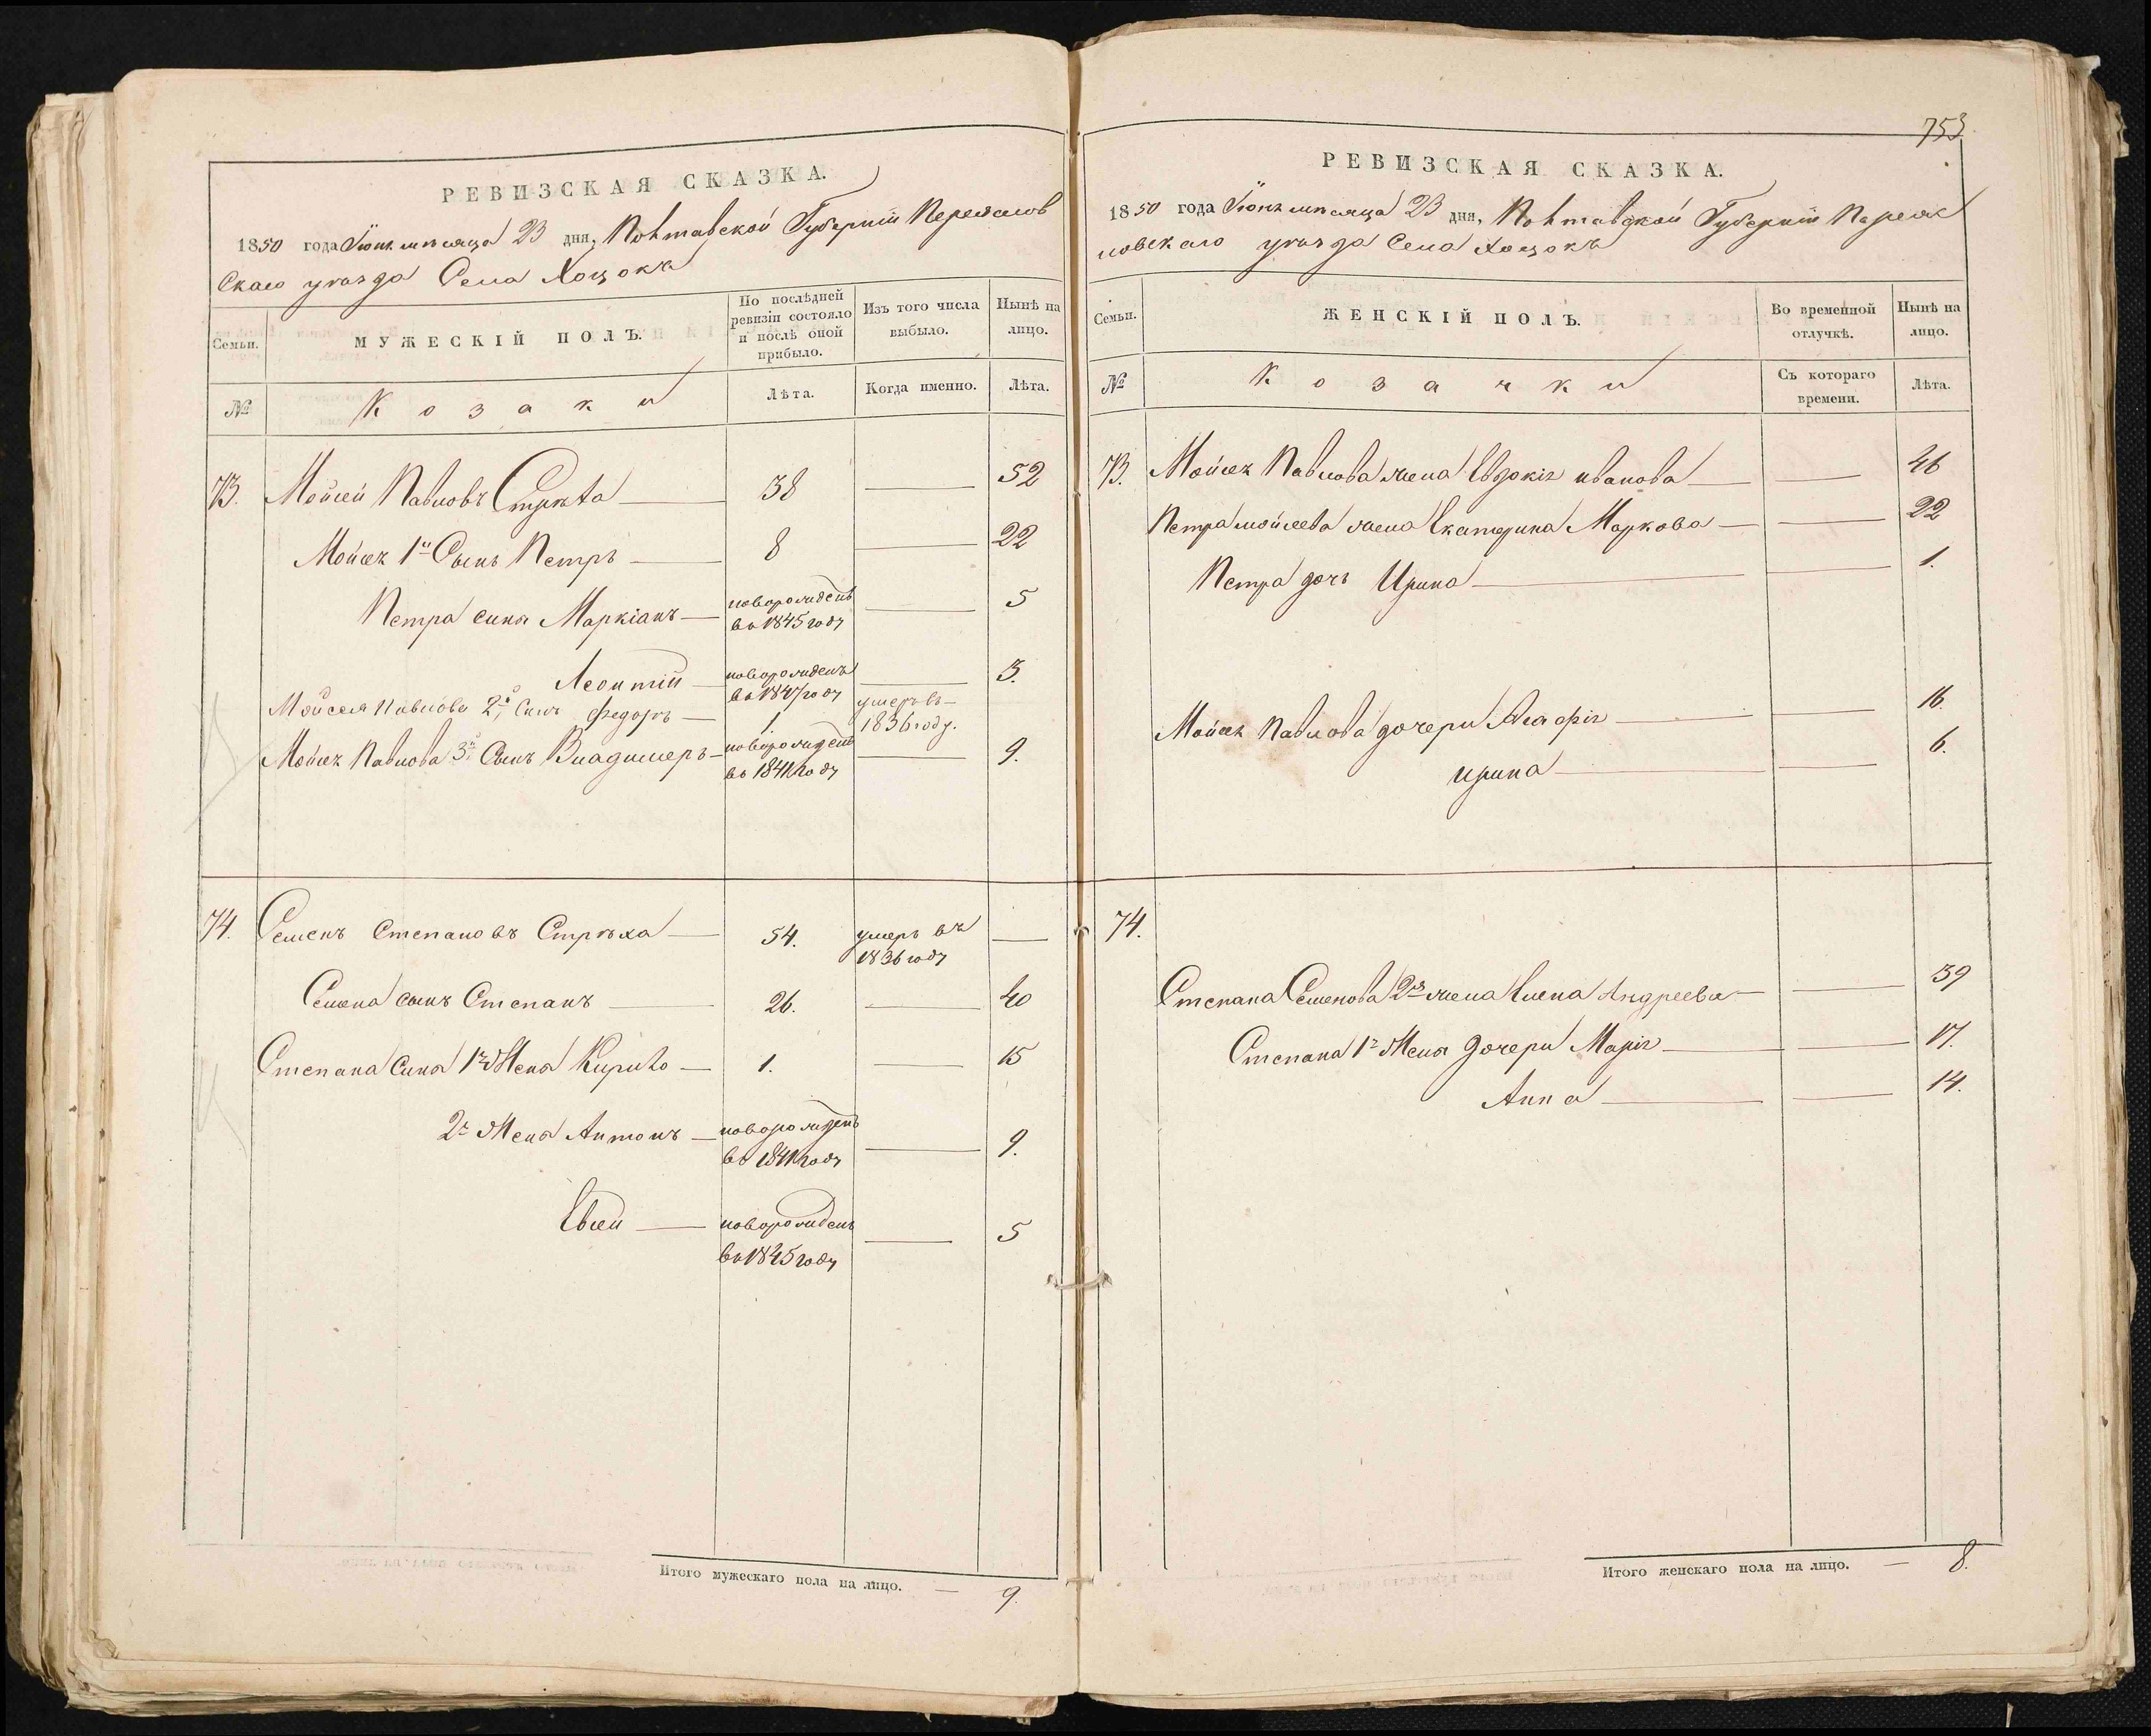 РЕВИЗСКАЯ СКАЗКА.
1850 года Іюня мѣсяца 23 дня, Полтавской Губерніи Переяслов
скаго уѣзда Села Хоцокъ
Семьи.
МУЖЕСКІЙ ПОЛЪ.
По послѣдней ревизіи состояло и послѣ оной прибыло.
Изъ того числа выбыло.
Нынѣ на лицо.
№
Козаки
Лѣта.
Когда именно.
Лѣта.
73. Мойсей Павловъ — 38 — 52
Мойсея 1й Сынъ Петръ — 8 — 22
Петра сына Маркіанъ — новорожденъ — 5
въ 1845 году
Леонтій — новорожденъ — 3.
въ 1847 году
Мойсея Павлова 2й Сынъ Федоръ — 1 умеръ въ
1836 году.
Мойсея Павлова 3й Сынъ Владимеръ — новорожденъ — 9.
въ 1841 году
74. Семенъ Степановъ Стрѣха — 54. умеръ въ —
1836 году
Семена сынъ Степанъ — 26. — 40
Степана Сына 1й Жены Кирило — 1. — 15
2й Жены Антонъ — новорожденъ — 9.
въ 1841 году
Евсей — новорожденъ — 5
въ 1845 году
Итого мужескаго пола на лицо. — 9.
753
РЕВИЗСКАЯ СКАЗКА.
1850 года Іюня мѣсяца 23 дня, Полтавской Губерніи Переяс
ловскаго уѣзда Села Хоцокъ
Семьи.
ЖЕНСКІЙ ПОЛЪ.
Во временной отлучкѣ.
Нынѣ на лицо.
№
Козачки
Съ котораго времени.
Лѣта.
73. Мойсея Павлова жена Евдокія иванова — — 46
Петра мойсеева жена Екатерина Маркова — — 22
Петра дочь Ирина — — 1.
Мойсея Павлова дочери Агафія — — 16.
ирина — — 6.
74.
Степана Семенова 2я жена Елена Андреева — — 39
Степана 1й Жены дочери Марія — — 17.
Анна — — 14.
Итого женскаго пола на лицо. — 8.